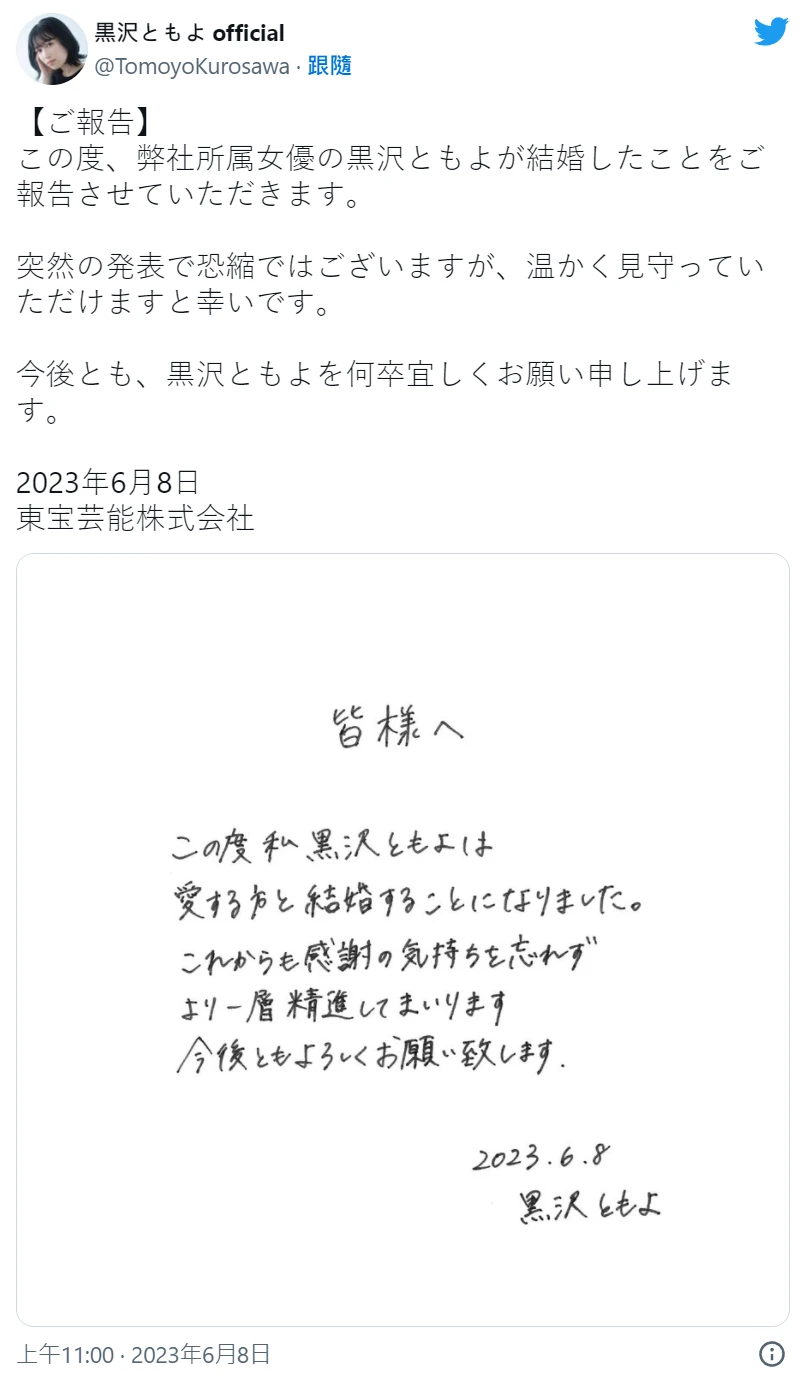 黒沢ともよ official
@TomoyoKurosawa · 跟隨
【ご報告】
この度、弊社所属女優の黒沢ともよが結婚したことをご
報告させていただきます。
突然の発表で恐縮ではございますが、温かく見守ってい
ただけますと幸いです。
今後とも、黒沢ともよを何卒宜しくお願い申し上げま
す。
2023年6月8日
東宝芸能株式会社
皆様へ
この度 私 黒沢ともよは
愛する方と結婚することになりました。
これからも感謝の気持ちを忘れず
より一層精進してまいります
今後ともよろしくお願い致します.
2023.6.8
黒沢ともよ
上午11:00 · 2023年6月8日